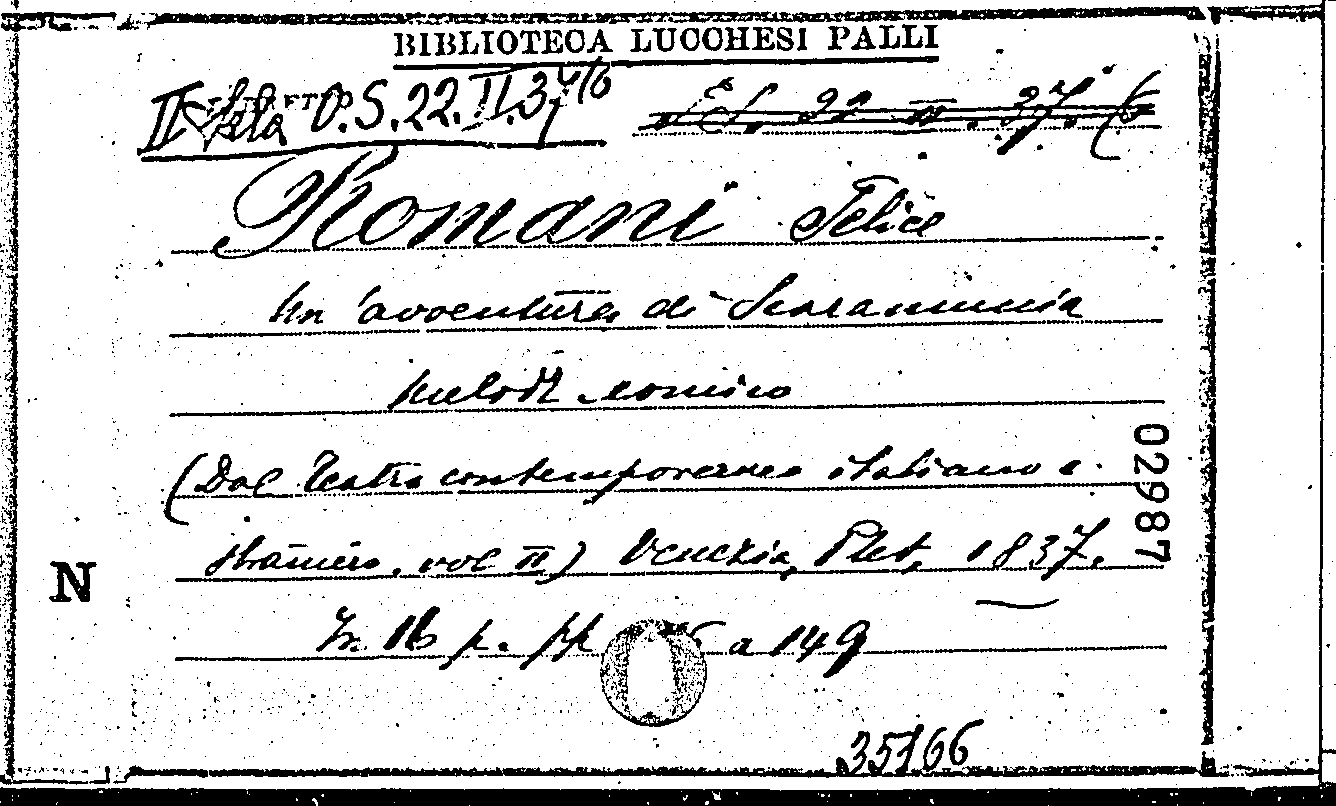 BIBLIOTECA LUCCHESI PALLI
II Sala O.S.22.II.37/6
22 II. 37. (6
Romani Felice
Un'avventura di Scaramuccia
Melodr comico
(Dal Teatro contemporaneo italiano e
straniero, vol II) Venezia, Plet, 1837.
In 16 p. pp a 149
02987
N
35166